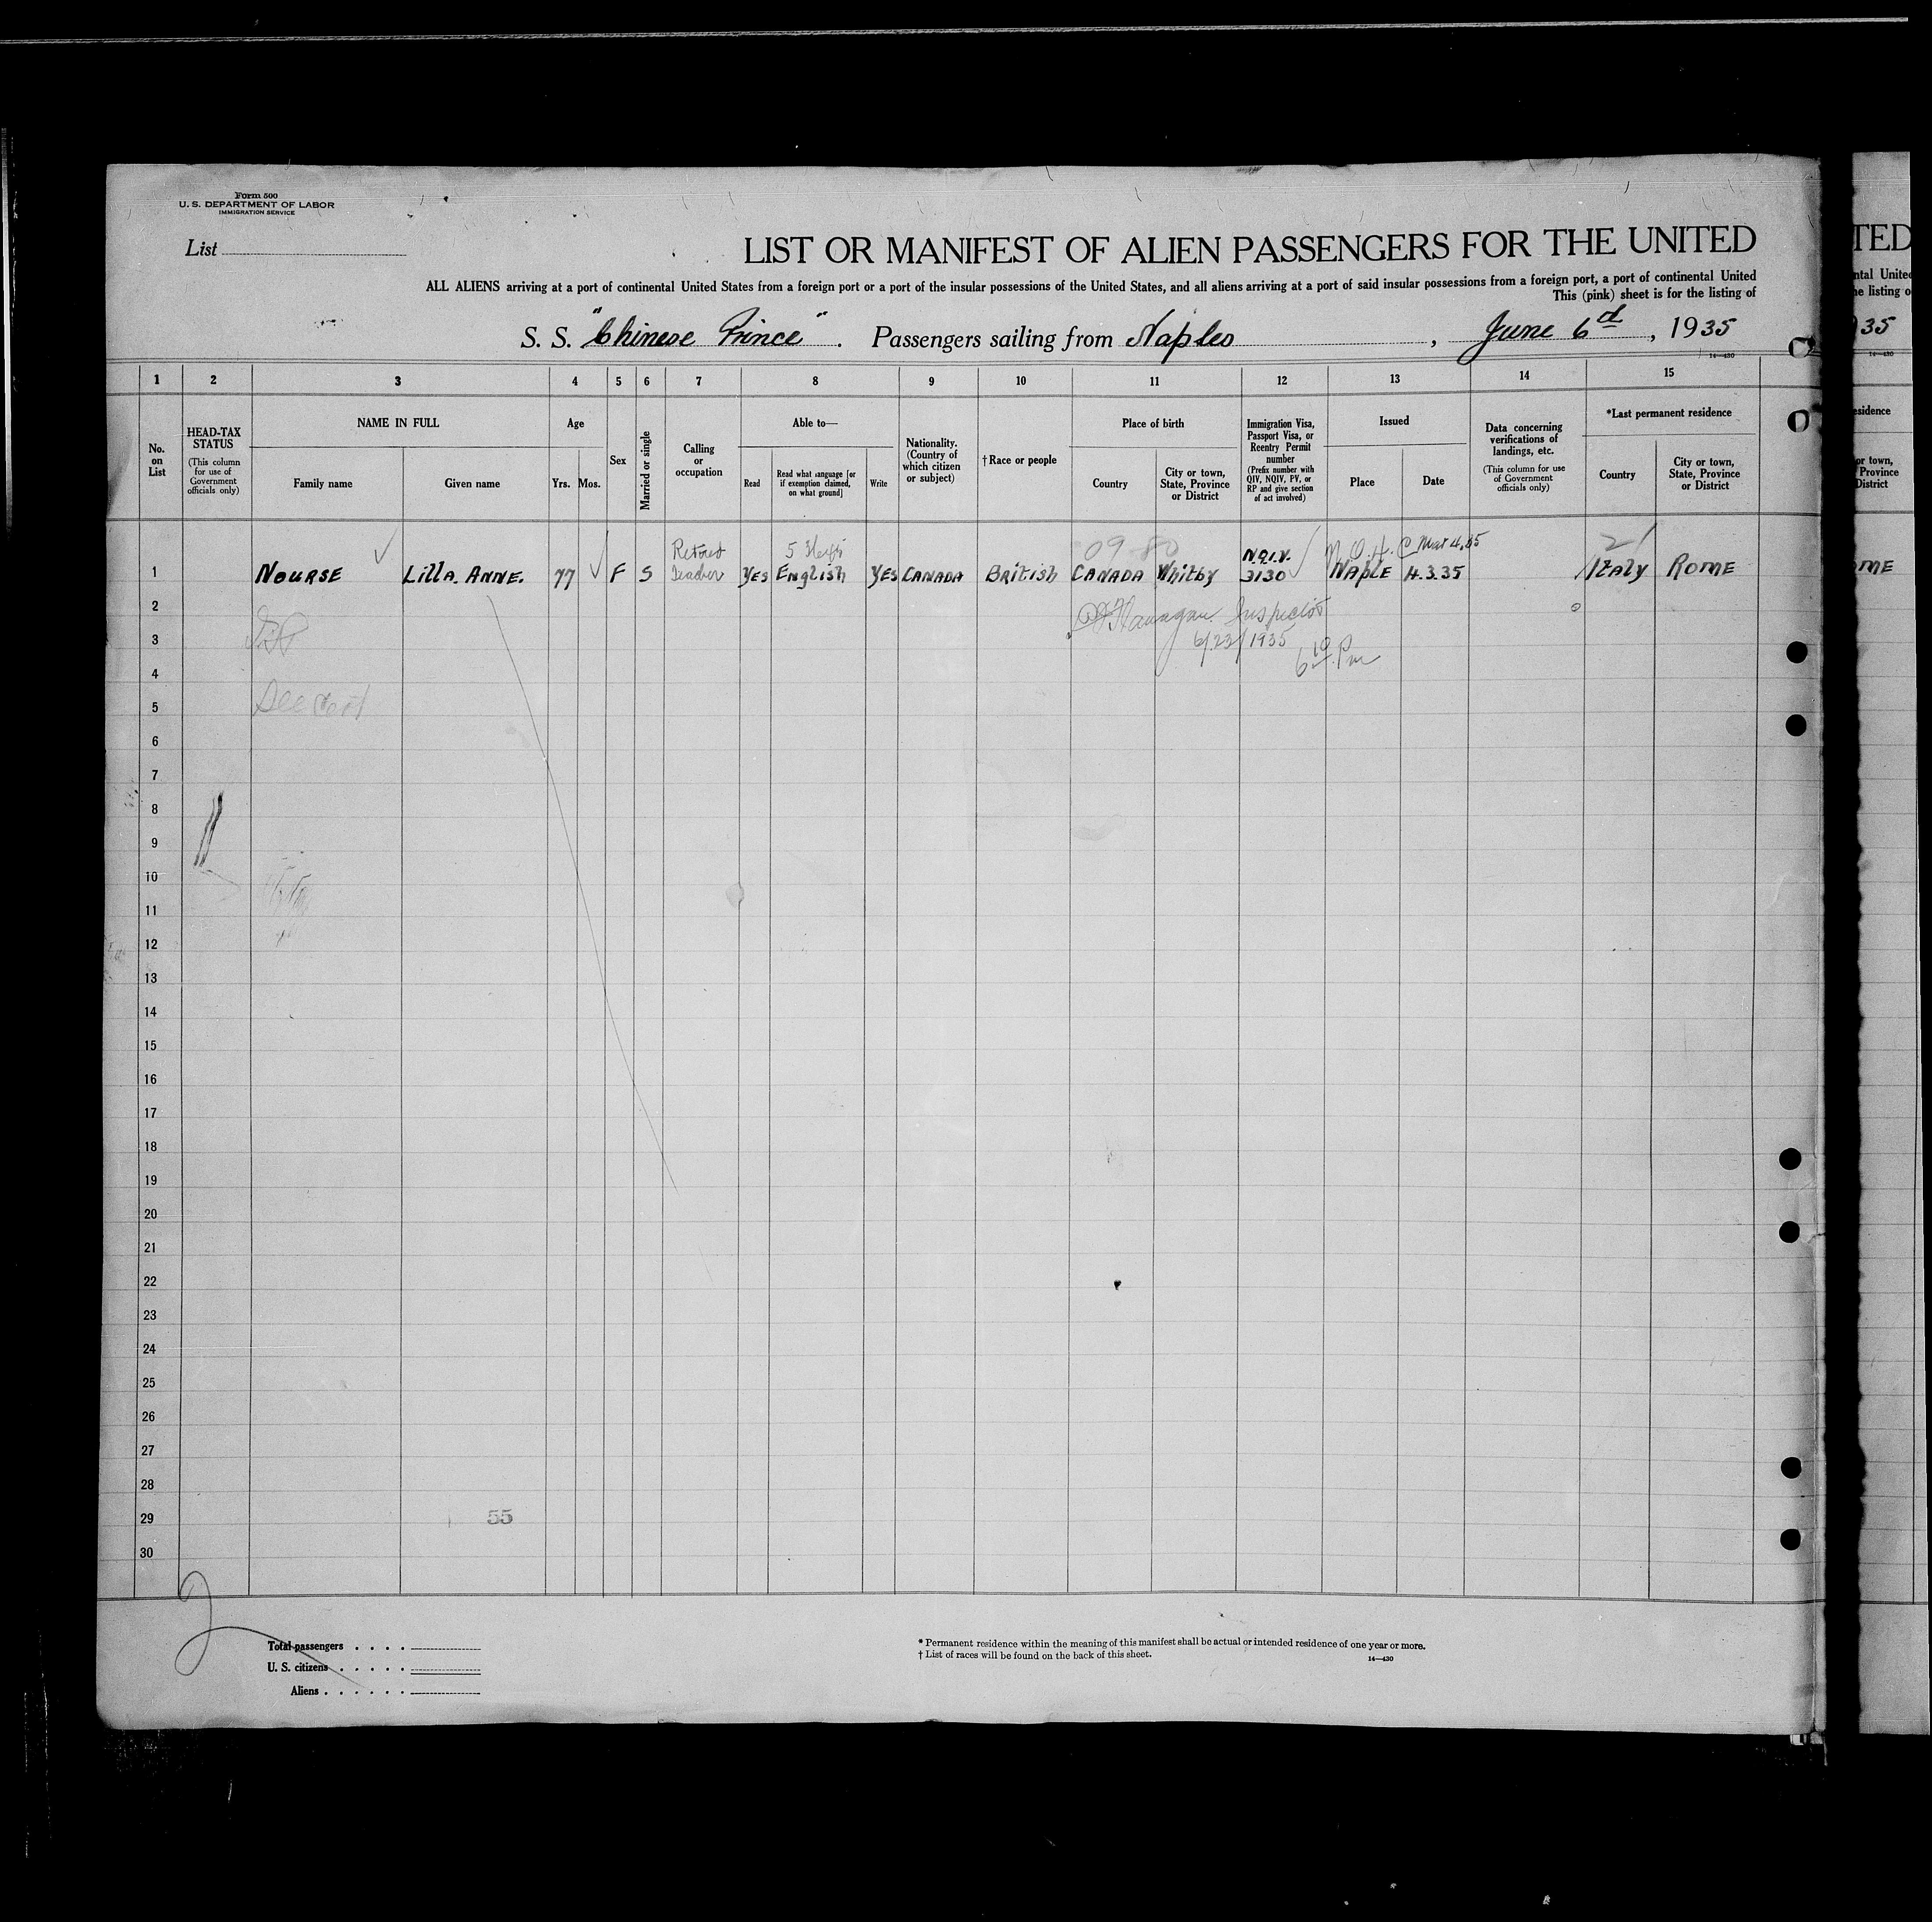 Form 500
U. S. DEPARTMENT OF LABOR
IMMIGRATION SERVICE
List
LIST OR MANIFEST OF ALIEN PASSENGERS FOR THE UNITED
ALL ALIENS arriving at a port of continental United States from a foreign port or a port of the insular possessions of the United States, and all aliens arriving at a port of said insular possessions from a foreign port, a port of continental United
This (pink) sheet is for the listing of
S. S. "Chinese Prince". Passengers sailing from Naples, June 6th, 1935
14—430
1 2 3 4 5 6 7 8 9 10 11 12 13 14 15
No. on List
HEAD-TAX STATUS
(This column for use of Government officials only)
NAME IN FULL
Family name
Given name
Age
Yrs. Mos.
Sex
Married or single
Calling or occupation
Able to—
Read
Read what language [or if exemption claimed, on what ground]
Write
Nationality. (Country of which citizen or subject)
†Race or people
Place of birth
Country
City or town, State, Province or District
Immigration Visa, Passport Visa, or Reentry Permit number
(Prefix number with QIV, NQIV, PV, or RP and give section of act involved)
Issued
Place
Date
Data concerning verifications of landings, etc.
(This column for use of Government officials only)
*Last permanent residence
Country
City or town, State, Province or District
Retired 09 80 N.Q.I.V. Mar 4, 35 21
1 NOURSE LILLA. ANNE. 77 F S Teacher YES ENGLISH YES CANADA BRITISH CANADA Whitby 3130 NAPLE 4.3.35 ITALY ROME
2 Inspector
3 6/23/1935
4 6 10 Pm
5
6
7
8
9
10
11
12
13
14
15
16
17
18
19
20
21
22
23
24
25
26
27
28
29 55
30
Total passengers . . . .
U. S. citizens . . . . .
Aliens . . . . . .
* Permanent residence within the meaning of this manifest shall be actual or intended residence of one year or more.
† List of races will be found on the back of this sheet.
14—430
TED
ntal United
he listing of
35
14—430
esidence
or town, Province District
OME